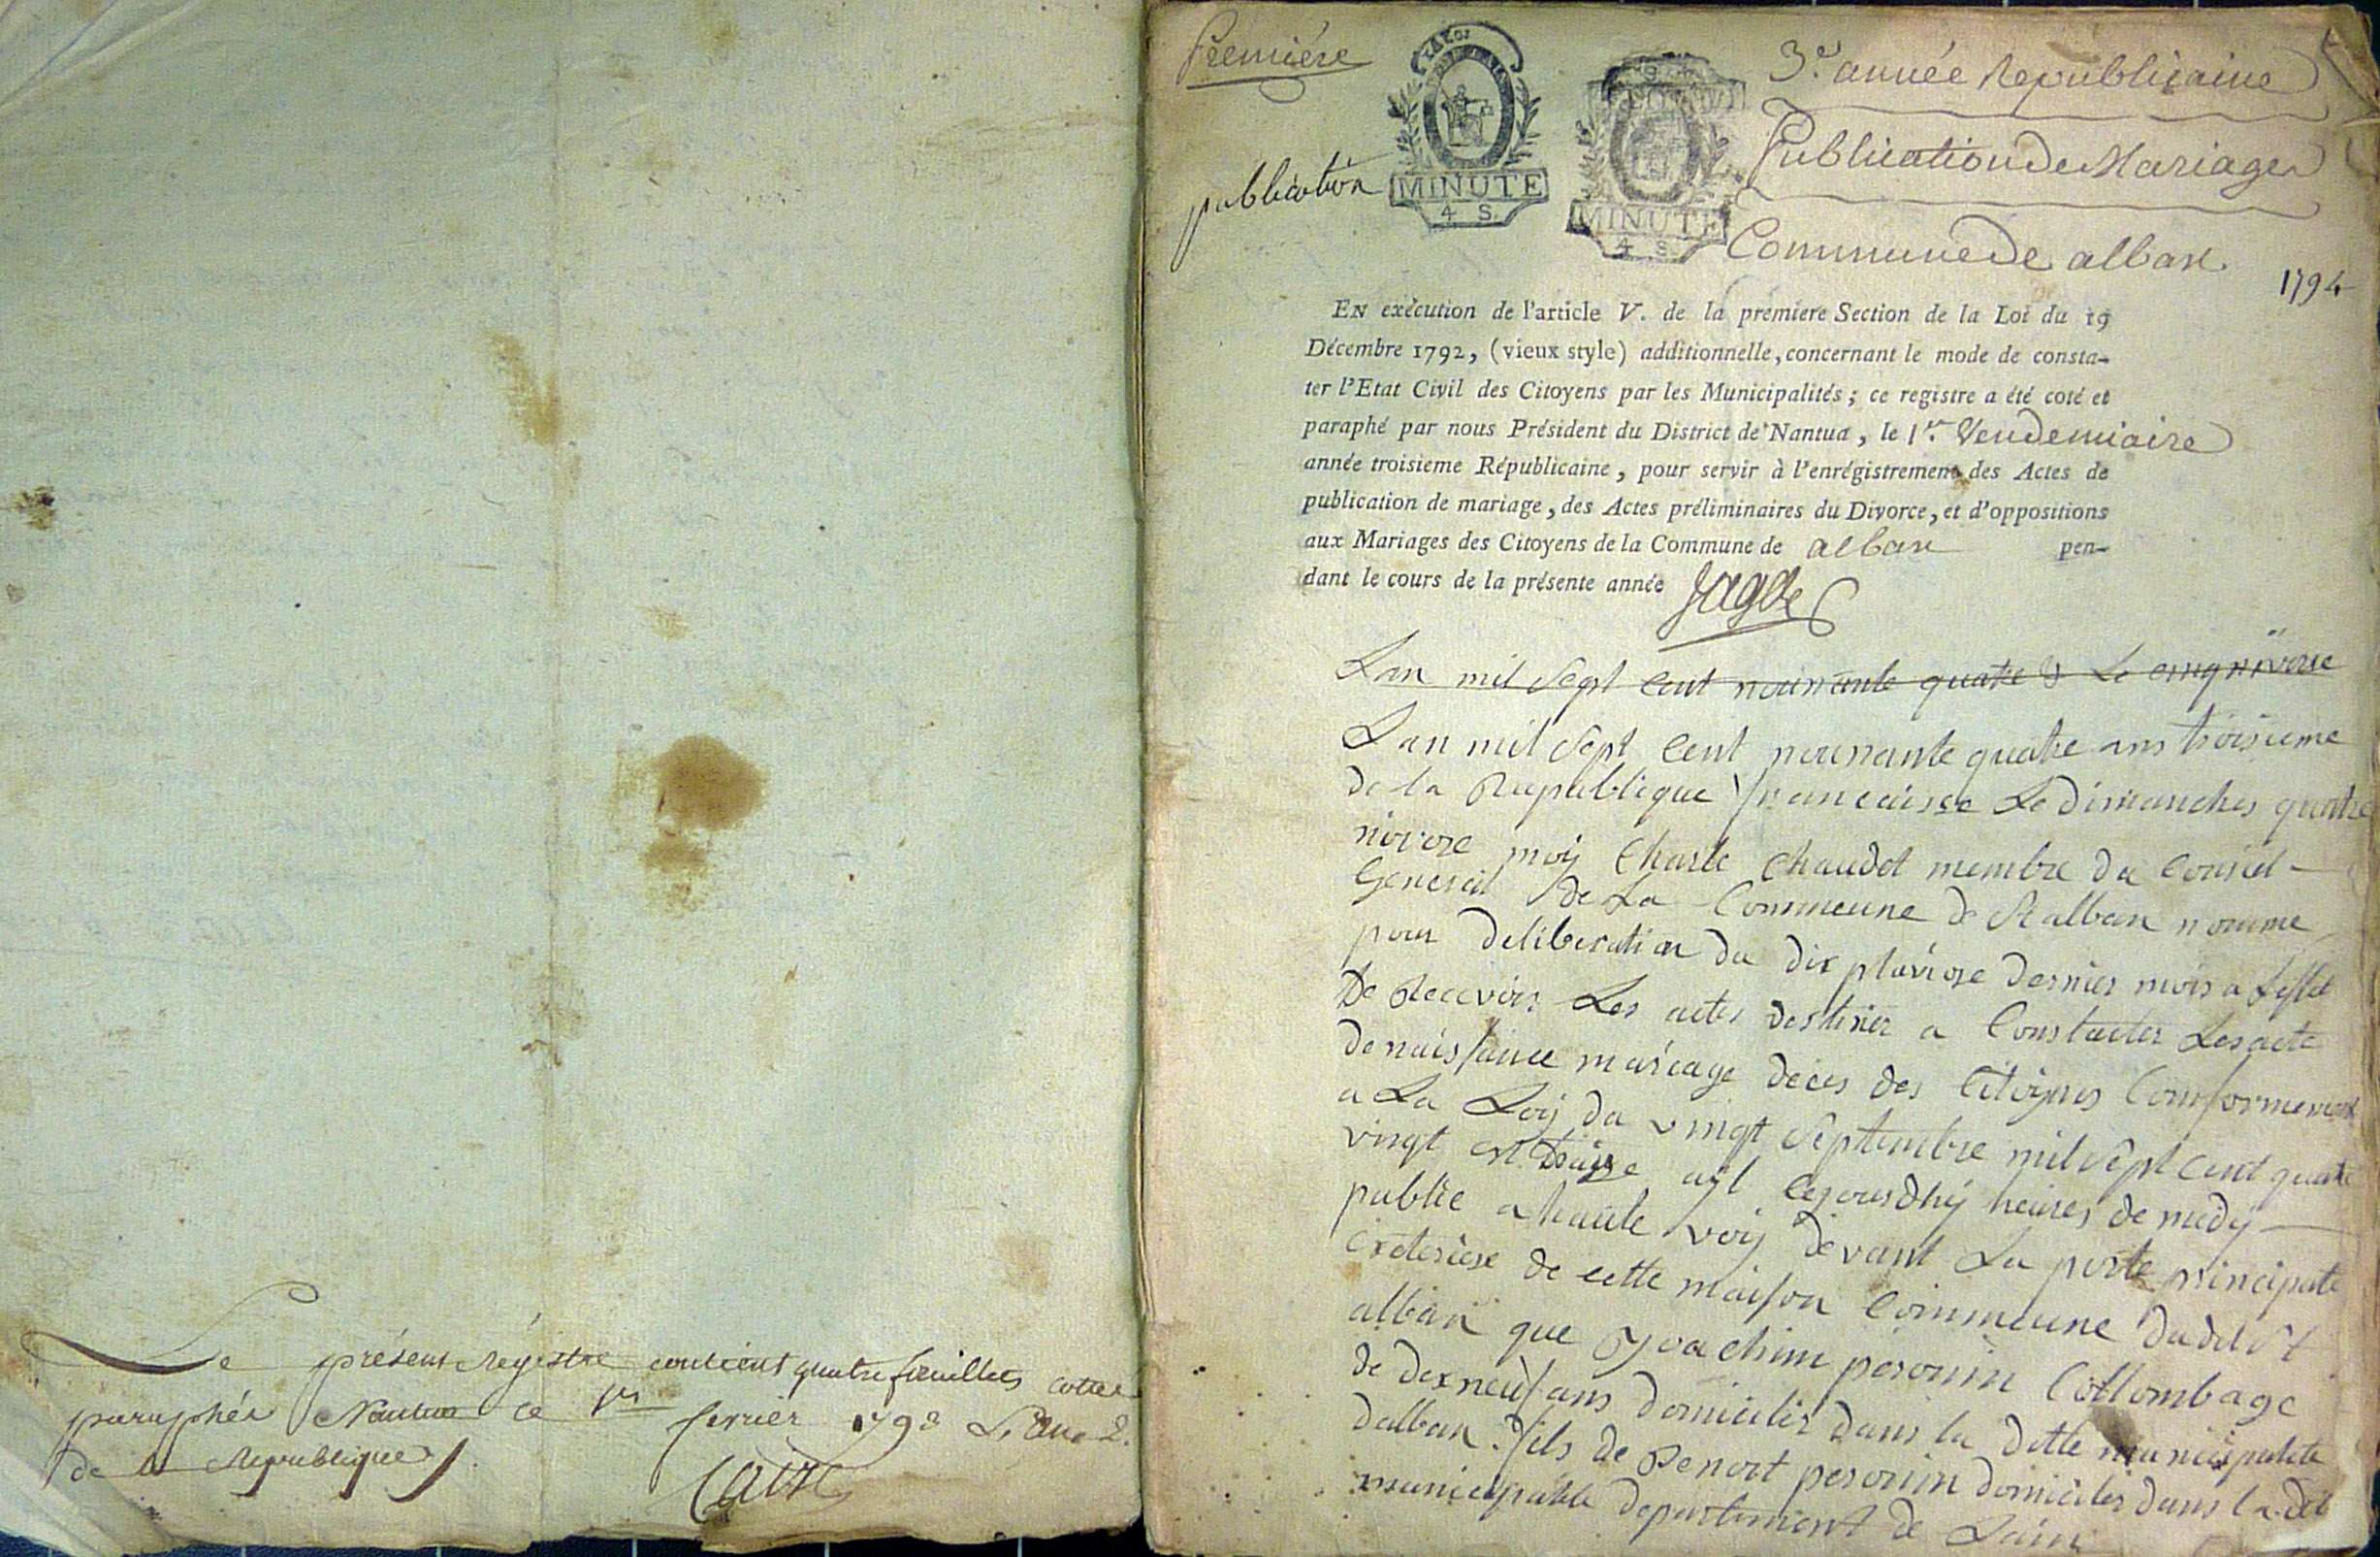 Le présent régistre contient quatre feuillets cottes
paraphés Nantua ce 1er fevrier 1793 L'an 2.
de la Republique
Premiére
publication
MINUTE
4 S.
MINUTE
4 S.
3e. année Republicaine
Publication de Mariages
Commune de alban
1794
EN exécution de l'article V. de la premiere Section de la Loi du 19
Décembre 1792, (vieux style) additionnelle, concernant le mode de consta-
ter l'Etat Civil des Citoyens par les Municipalités ; ce registre a été coté et
paraphé par nous Président du District de Nantua, le 1er. Vendemiaire
année troisieme Républicaine, pour servir à l'enrégistrement des Actes de
publication de mariage, des Actes préliminaires du Divorce, et d'oppositions
aux Mariages des Citoyens de la Commune de alban pen-
dant le cours de la présente année
Lan mil sept cent nounante quatre & Le cinq nivose
Lan mil sept cent nounante quatre ans troisieme
de la Republique francaisse Le dimanches quatre
nivose moy Charle Chaudet membre du Conseil
General de La Commeune de St alban nomme
pour deliberation du dix pluviose dernier mois a Leffet
De Recevoir Les actes destinés a Constater Les acte
de naissance mareage déces des Citoyens Comformement
a La Loy du vingt Septembre mil sept cent quatre
vingt et treisse ait cejourdhy heures de midy
publie a haute voiy devant La porte principale
exteriese de cette maison Commeune dudit St
alban que Joachim peronin Collombage
de dexneuf ans domicilier dans la ditte municipalite
dalban. fils de Benoit peronin domicilier dans la dit
municipalite departement de Lain